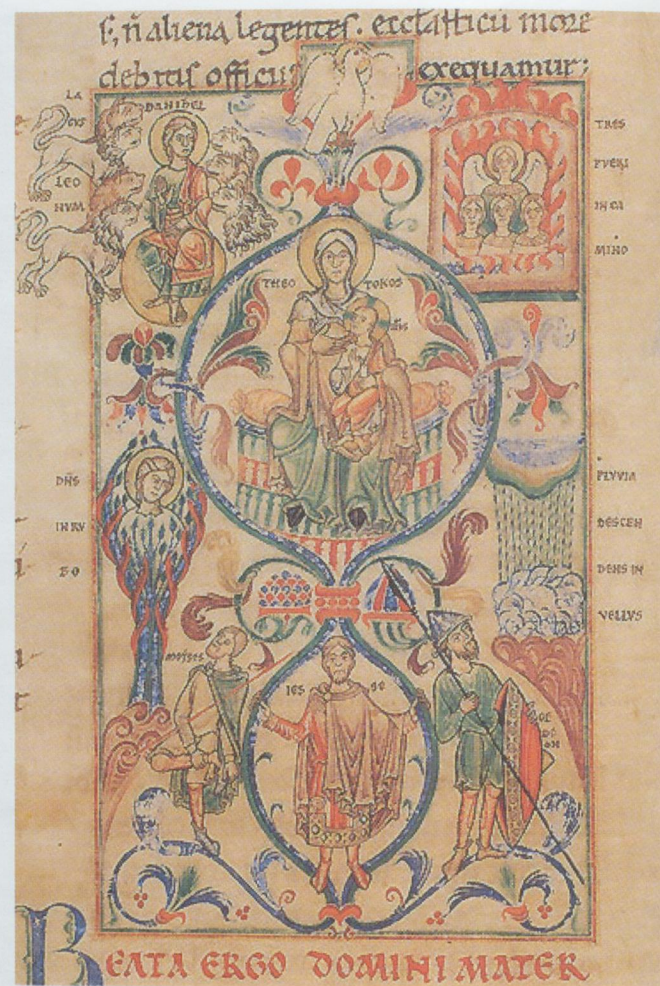 s; n̄ aliena legentes. eccłasticū more
debitis officiis exequamur;
LA
CVS
LEO
NVM
DANIHEL
TRES
PVERI
IN CA
MINO
THEO TOKOS
DN̄S
IN RV
BO
PLVVIA
DESCEN
DENS IN
VELLVS
MOYSES
IES SE
GE
DE
ON
BEATA ERGO DOMINI MATER